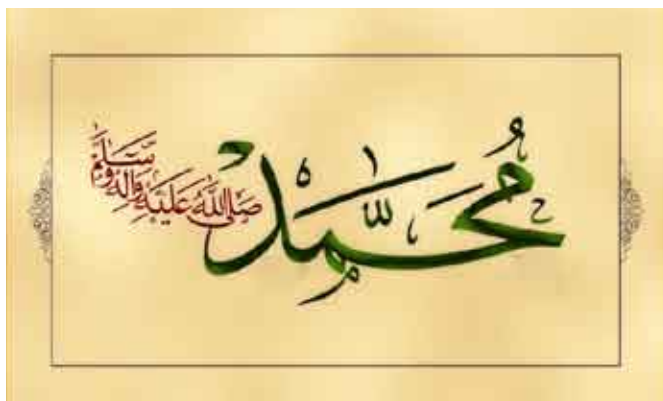 مُحَمَّد
صَلَّى اللَّهُ عَلَيْهِ وَآلِهِ وَسَلَّمَ